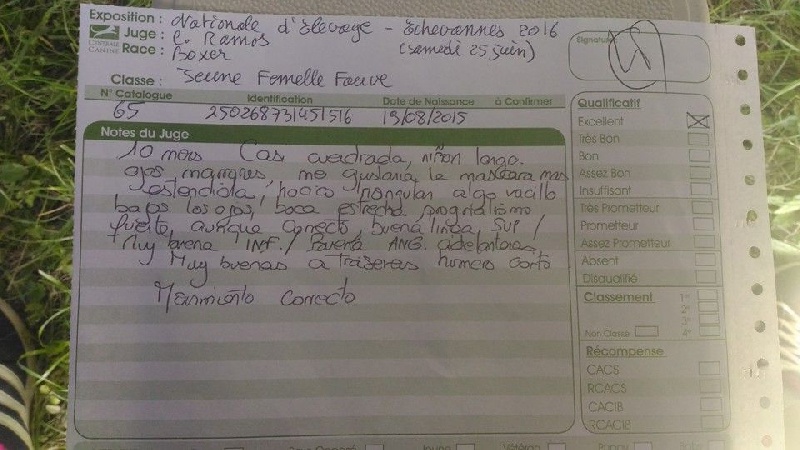 Exposition : Nationale d'Elevage - Echevannes 2016
Juge : C. Ramos (samedi 25 juin)
Race : Boxer
CENTRALE CANINE
Signature
Classe : Jeune Femelle Fauve
N° Catalogue Identification Date de Naissance à Confirmer
65 250268731451516 19/08/2015
Notes du Juge
10 mes Casi cuadrada, largo.
ojos marrones, me gustaria la mascara mas
estendida, hocico triangular algo vacillo
bajos los ojos, boca estrecha, prognatismo
fuerte, aunque correcto, buena linea SUP /
Muy buena INF. / Buena ANG. adelantadas,
Muy buenas a traseras humero corto
Movimiento correcto
Qualificatif
Excellent
Très Bon
Bon
Assez Bon
Insuffisant
Très Prometteur
Prometteur
Assez Prometteur
Absent
Disqualifié
Classement 1er
Non Classé
Récompense
CACS
RCACS
CACIB
RCACIB